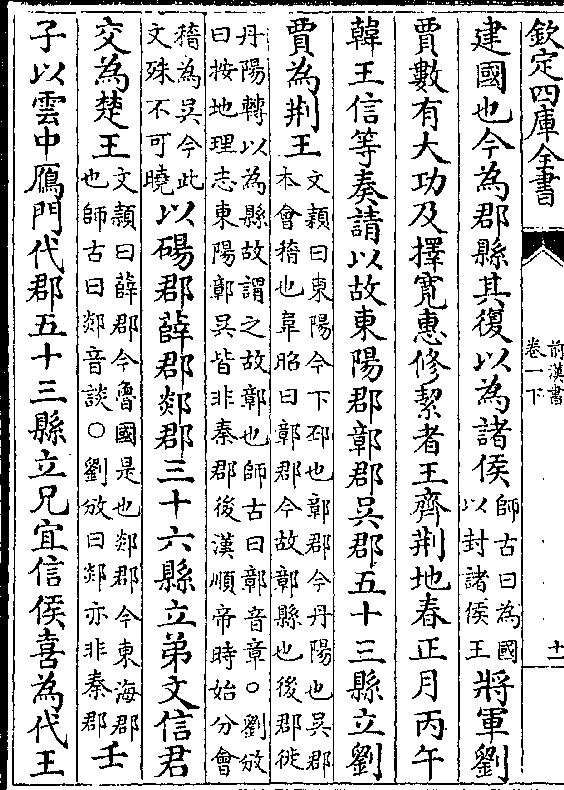 欽定四庫全書
前漢書
卷一下
十一
建國也今為郡縣其復以為諸侯師古曰為國以封諸侯王將軍劉
賈數有大功及擇寬惠修絜者王齊荆地春正月丙午
韓王信等奏請以故東陽郡鄣郡吳郡五十三縣立劉
賈為荆王文穎曰東陽今下邳也鄣郡今丹陽也吳郡本會稽也韋昭曰鄣郡今故鄣縣也後郡徙
丹陽轉以為縣故謂之故鄣也師古曰鄣音章○劉攽曰按地理志東陽鄣吳皆非秦郡後漢順帝時始分會
稽為吳今此文殊不可曉以碭郡薛郡郯郡三十六縣立弟文信君
交為楚王文穎曰薛郡今魯國是也郯郡今東海郡也師古曰郯音談○劉攽曰郯亦非秦郡壬
子以雲中鴈門代郡五十三縣立兄宜信侯喜為代王